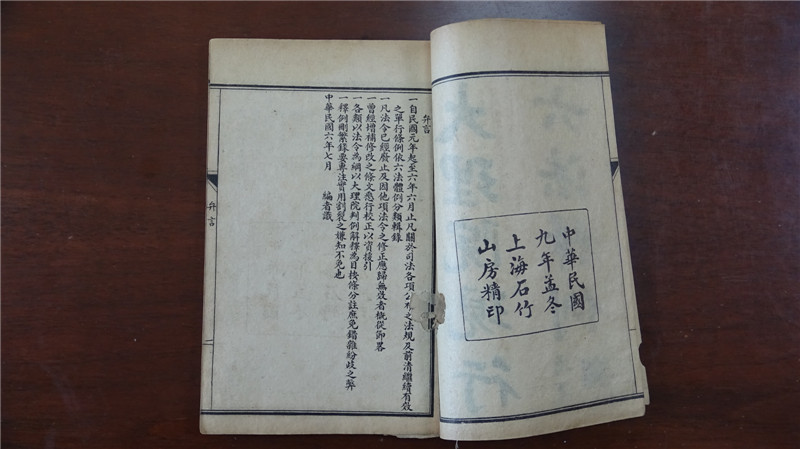 中華民國
九年孟冬
上海石竹
山房精印
弁言
一自民國元年起至六年六月止凡關於司法各項公布之法規及前清繼續有效
之單行條例依六法體例分類輯錄
一凡法令已經廢止及因他項法令之修正應歸無效者概從節畧
一曾經增補修改之條文悉行校正以資援引
一各類以法令為綱以大理院判例解釋為目按條分註庶免錯雜紛歧之弊
一釋例刪繁錄要專注實用割裂之嫌知不免也
中華民國六年七月 編者識
弁言